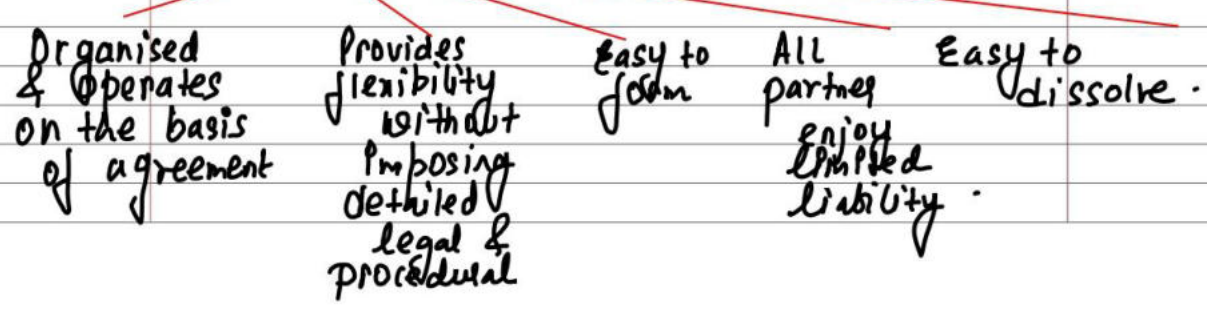 Organised
& Operates
on the basis
of agreement
Provides
flexibility
without
Imposing
detailed
legal &
procedural
Easy to
form
All
partner
enjoy
limited
liability.
Easy to
dissolve.